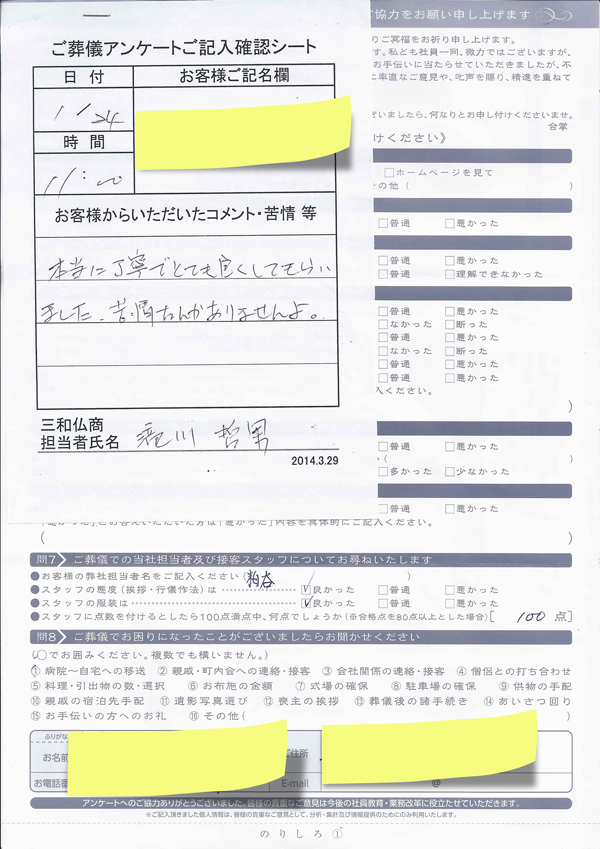 ご協力をお願い申し上げます
ご葬儀アンケートご記入確認シート
日付
お客様ご記名欄
1/24
時間
11:00
お客様からいただいたコメント・苦情 等
本当に丁寧でとても良くしてもらい
ました。苦情なんかありませんよ。
三和仏商
担当者氏名
川 哲男
2014.3.29
りご冥福をお祈り申し上げます。
す。私ども社員一同、微力ではございますが、
お手伝いに当たらせていただきましたが、不
に率直なご意見や、叱声を賜り、精進を重ねて
ざいましたら、何なりとお申し付けくださいませ。
合掌
けください》
□ホームページを見て
その他( )
□普通 □悪かった
□普通 □悪かった
□普通 □理解できなかった
□普通 □悪かった
□なかった □断った
□普通 □悪かった
□なかった □断った
□普通 □悪かった
□普通 □悪かった
入ください。
)
□普通 □悪かった
( )
□多かった □少なかった
□普通 □悪かった
「悪かった」とお答えいただいた方は「悪かった」内容を具体的にご記入ください。
( )
問7 ご葬儀での当社担当者及び接客スタッフについてお尋ねいたします
●お客様の弊社担当者名をご記入ください(粕谷 )
●スタッフの態度(挨拶・行儀作法)は ☑良かった □普通 □悪かった
●スタッフの服装は ☑良かった □普通 □悪かった
●スタッフに点数を付けるとしたら100点満点中、何点でしょうか(※合格点を80点以上とした場合)[ 100 点]
問8 ご葬儀でお困りになったことがございましたらお聞かせください
(○でお囲みください。複数でも構いません。)
① 病院~自宅への移送 ② 親戚・町内会への連絡・接客 ③ 会社関係の連絡・接客 ④ 僧侶との打ち合わせ
⑤ 料理・引出物の数・選択 ⑥ お布施の金額 ⑦ 式場の確保 ⑧ 駐車場の確保 ⑨ 供物の手配
⑩ 親戚の宿泊先手配 ⑪ 遺影写真選び ⑫ 喪主の挨拶 ⑬ 葬儀後の諸手続き ⑭ あいさつ回り
⑮ お手伝いの方へのお礼 ⑯ その他( )
ふりがな
お名前
ご住所
お電話番
E-mail @
アンケートへのご協力ありがとうございました。皆様の貴重なご意見は今後の社員教育・業務改革に役立たせていただきます。
※ご記入頂きました個人情報は、皆様の貴重なご意見として、分析・集計及び情報提供のためにのみ利用いたします。
のりしろ①